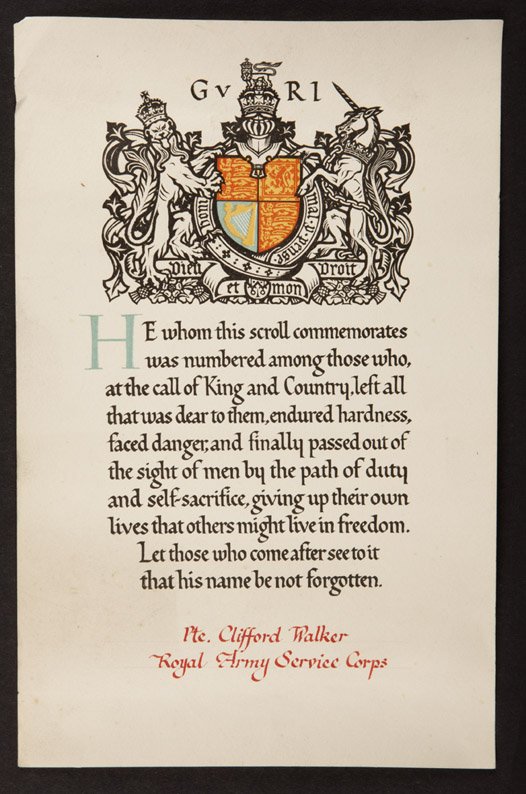 GV RI
mal y pense
Dieu Droit
et mon
HE whom this scroll commemorates
was numbered among those who,
at the call of King and Country, left all
that was dear to them, endured hardness,
faced danger, and finally passed out of
the sight of men by the path of duty
and self-sacrifice, giving up their own
lives that others might live in freedom.
Let those who come after see to it
that his name be not forgotten.
Pte. Clifford Walker
Royal Army Service Corps